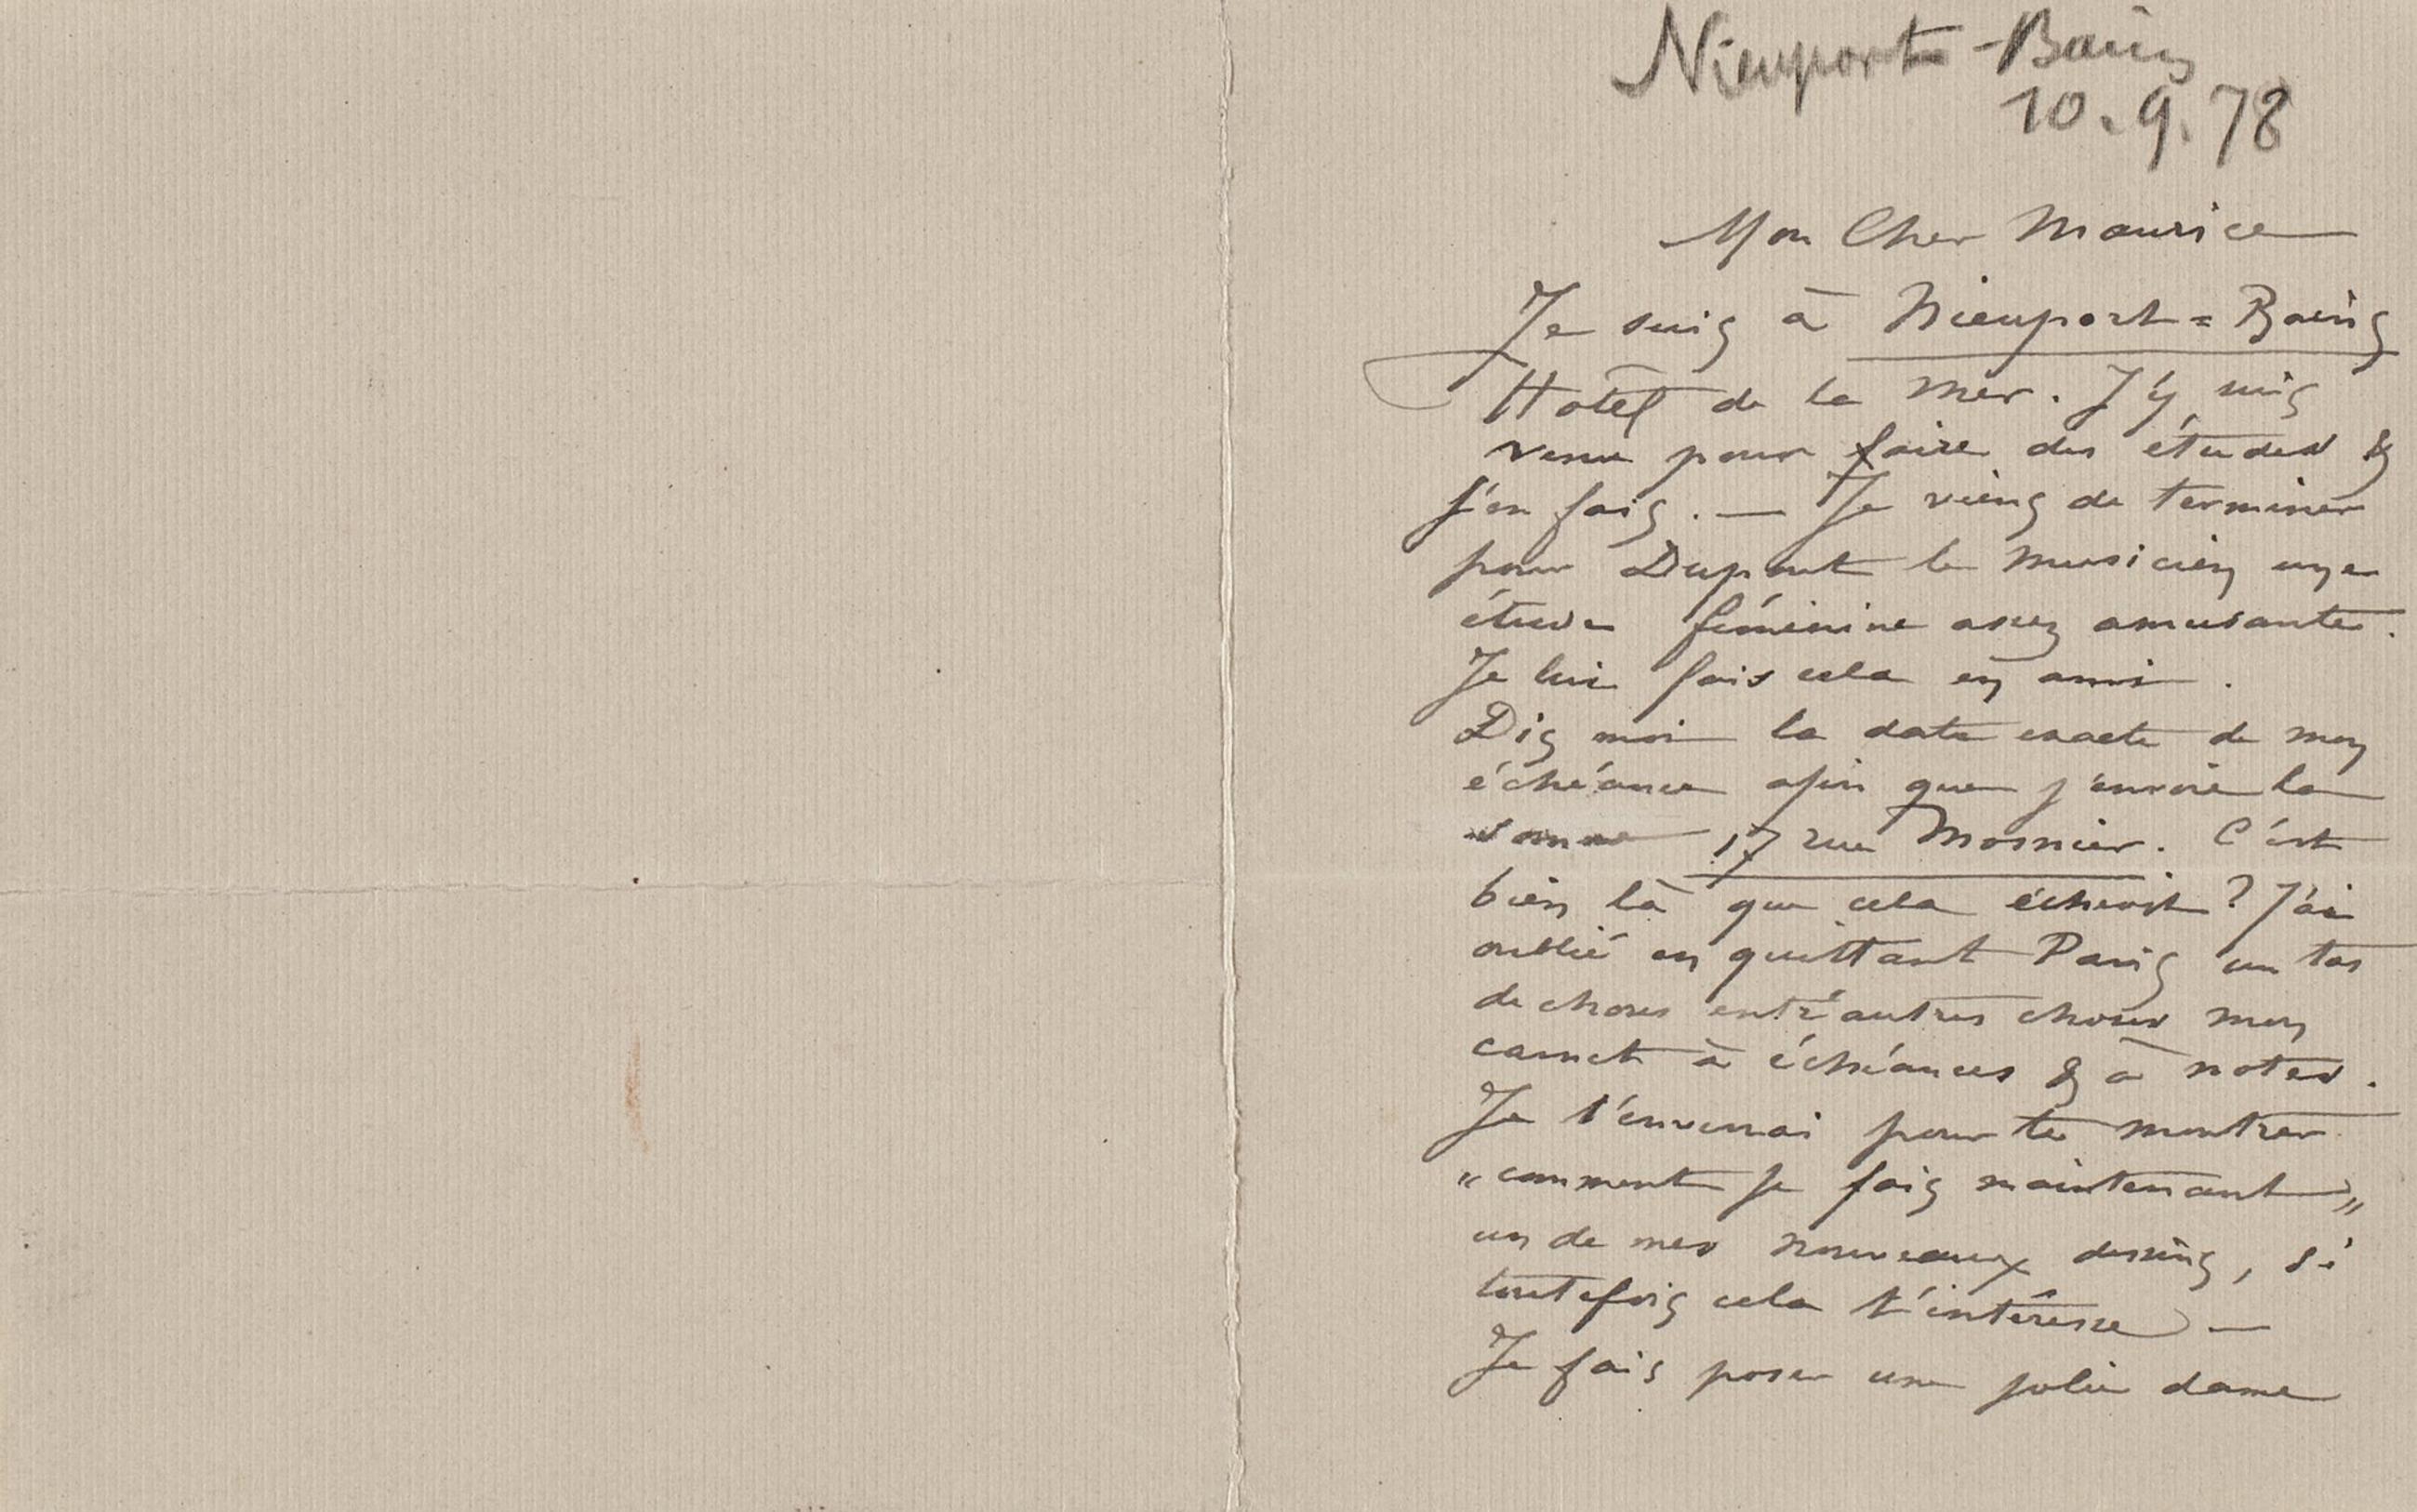 Nieuport-Bains
10.9.78
Mon Cher Maurice
Je suis à Nieuport=Bains
Hôtel de la mer. J'y suis
venu pour faire des études &
j'en fais. — Je viens de terminer
pour Dupont le musicien une
étude féminine assez amusante.
Je lui fais cela en ami.
Dis moi la date exacte de mon
échéance afin que j'envoie la
somme 17 rue Mosnier. C'est
bien là que cela échoit? J'ai
oublié en quittant Paris un tas
de choses entr'autres choses mon
carnet à échéances & à notes.
Je t'enverrai pour te montrer
„comment je fais maintenant„
un de mes nouveaux dessins, si
toutefois cela t'intéresse —
Je fais poser une jolie dame